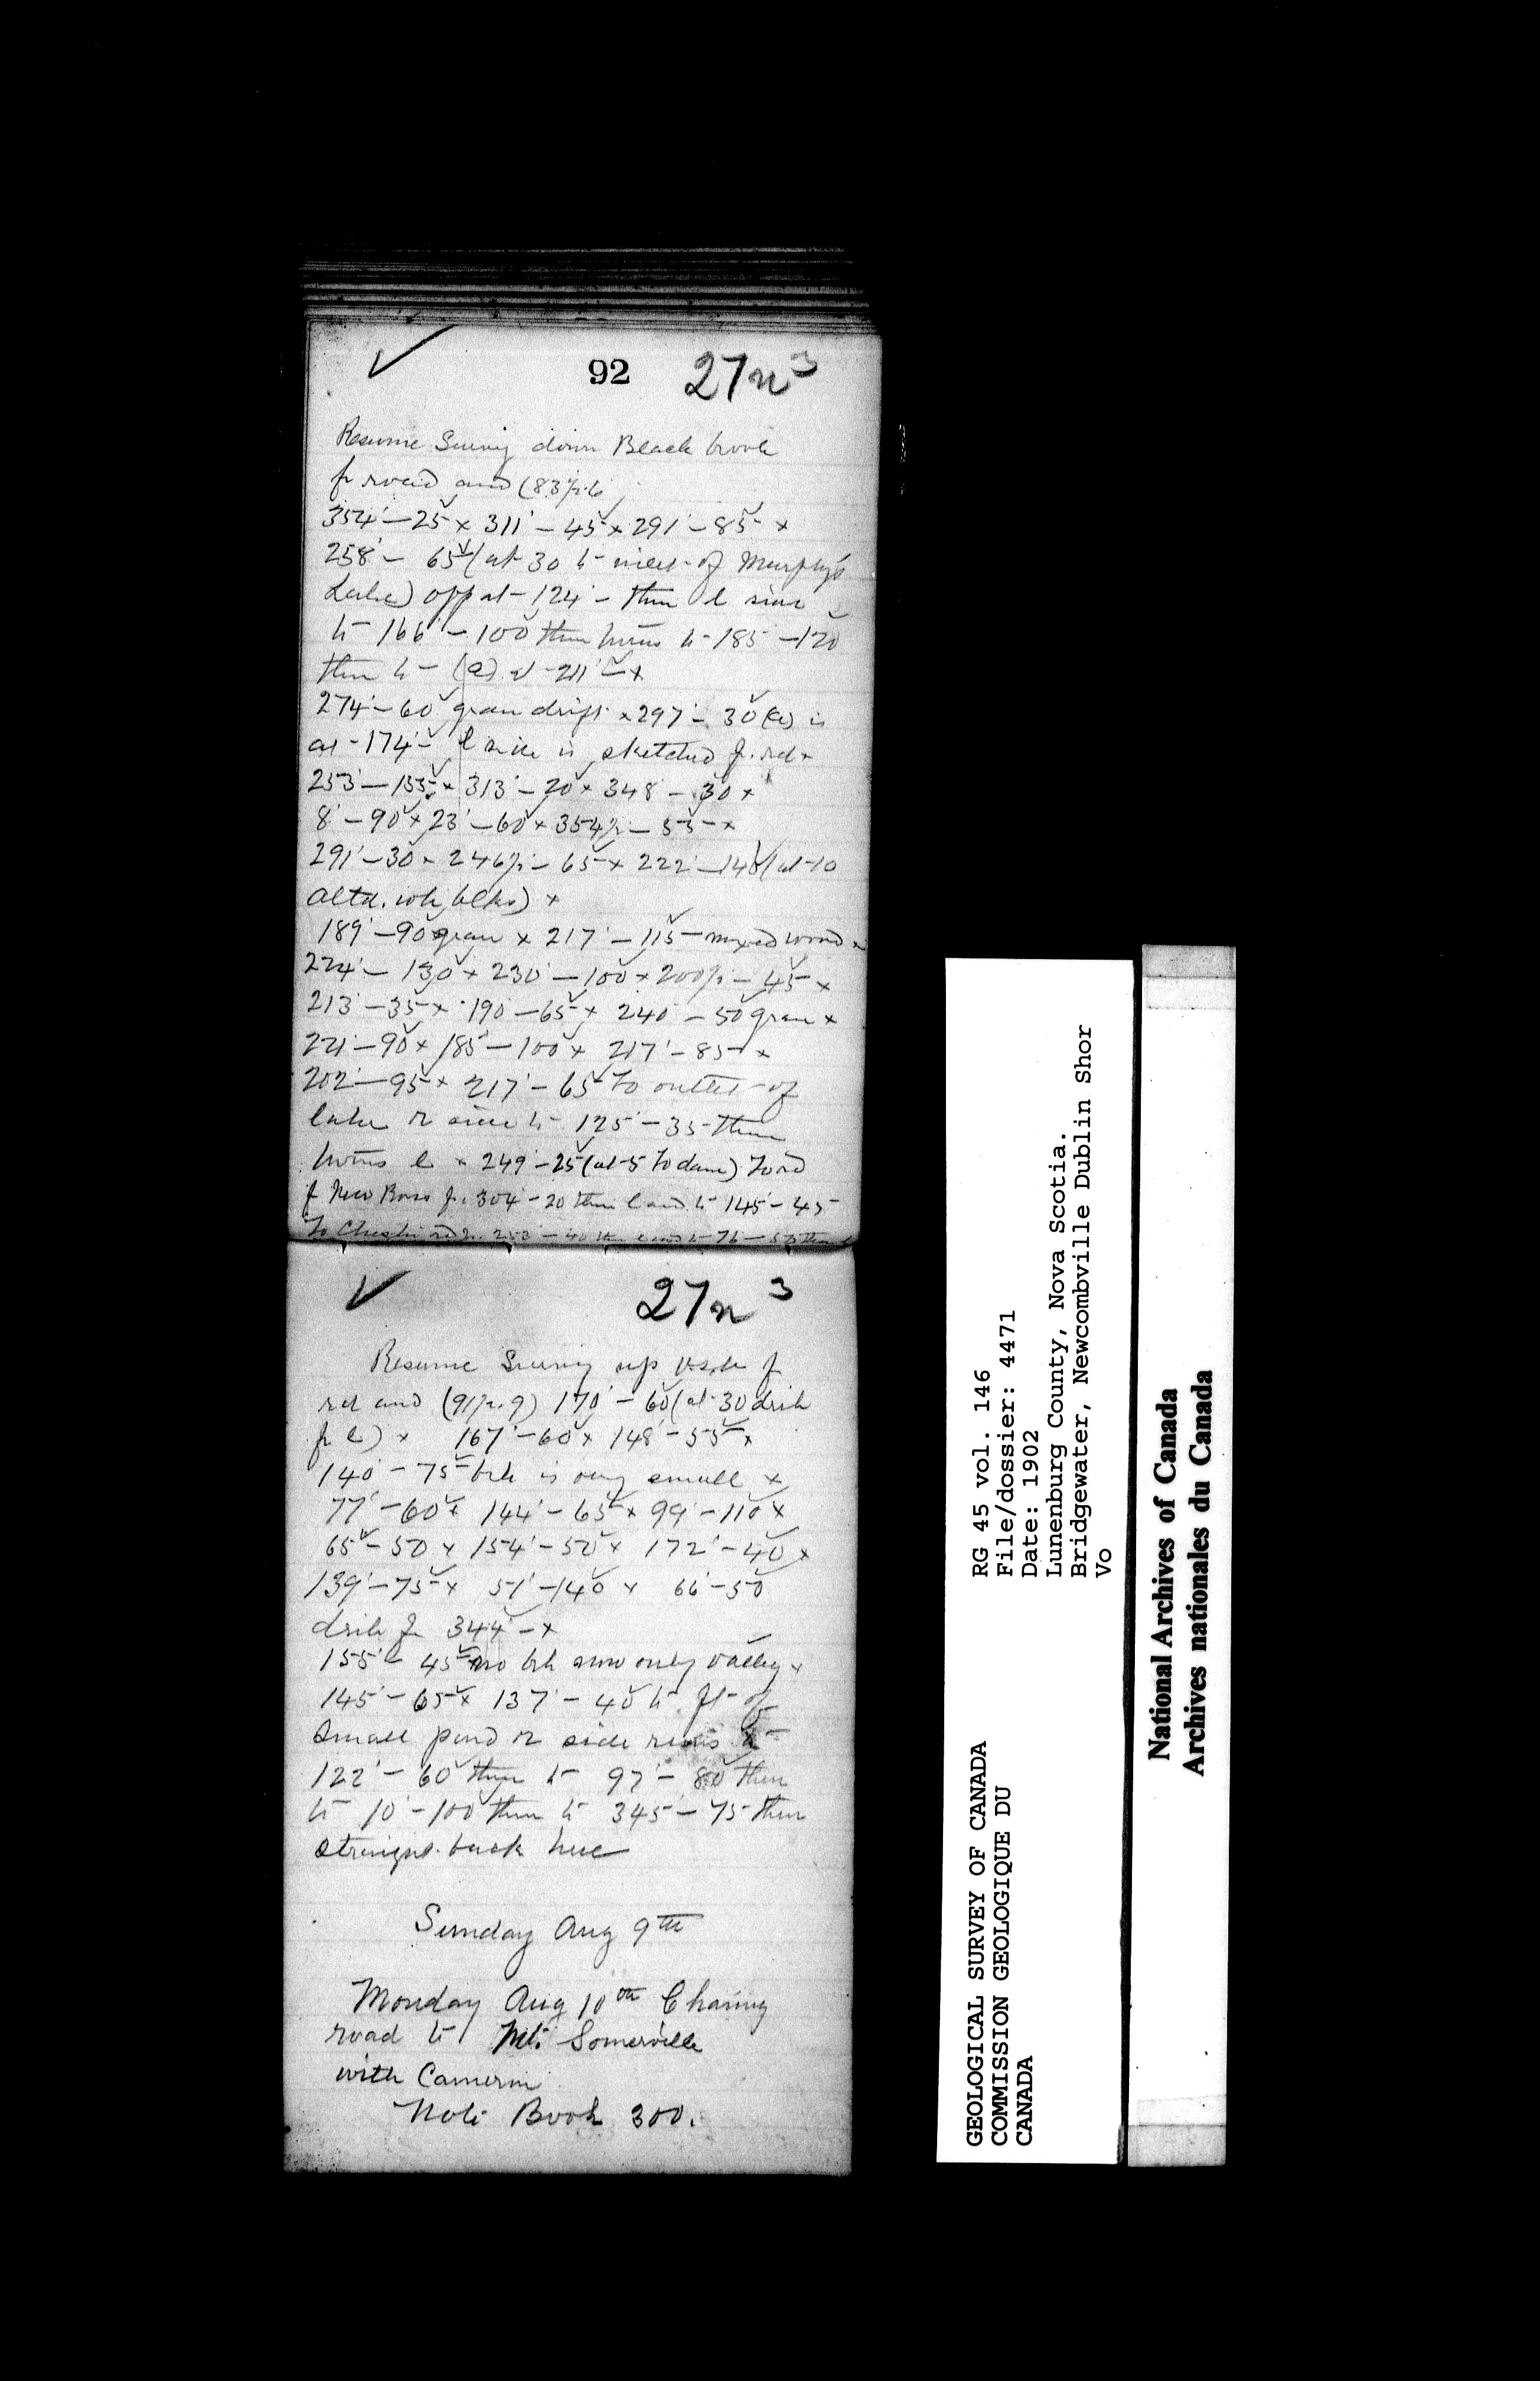 92 27n³
Resume Survey down Black brook
fr road and (83½.6
354' – 25 x 311' – 45 x 291' – 85 x
258' – 65 (at 30 to inlet of Murphy's
Lake) opp at – 124' – then l side
to 166' – 100 then turns to 185' – 120
then to – (a) at – 211' – x
274' – 60 gran drift x 297' – 30 (a) is
at – 174' – l side is sketched fr. rd x
253' – 155 x 313' – 20 x 348' – 30 x
8' – 90 x 23' – 60 x 354½ – 55 x
291' – 30 x 246½ – 65 x 222' – 140 (at 10
altd. wh. blks) x
189' – 90 gran x 217' – 115 – mixed wood x
224' – 130 x 230' – 100 x 200½ – 45 x
213' – 35 x 190' – 65 x 240' – 50 gran x
221' – 90 x 185' – 100 x 217' – 85 x
202' – 95 x 217' – 65 to outlet of
lake r side to 125' – 35 then
turns l x 249' – 25 (at 5 to dam) to rd
f New Ross fr. 304' – 20 then l and to 145' – 45
To Chester rd fr. 253' – 40 then to 76' –
27n³
Resume Survey up bk fr
rd and (91½.9) 170' – 60 (at 30
fr l) x 167' – 60 x 148' – 55 x
140' – 75 brk is very small x
77' – 60 x 144' – 65 x 99' – 110 x
65' – 50 x 154' – 50 x 172' – 40 x
139' – 75 x 51' – 140 x 66' – 50
fr 344' – x
155' – 45 no brk now only valley x
145' – 65 x 137' – 40 to ft of
small pond r side runs to
122' – 60 then to 97' – 80 then
to 10' – 100 then to 345' – 75 then
straight back here
Sunday Aug 9th
Monday Aug 10th Chaining
road to Mt. Somerville
with Cameron
Note Book 300.
RG 45 vol. 146
File/dossier: 4471
Date: 1902
Lunenburg County, Nova Scotia.
Bridgewater, Newcombville Dublin Shor
Vo
GEOLOGICAL SURVEY OF CANADA
COMMISSION GEOLOGIQUE DU
CANADA
National Archives of Canada
Archives nationales du Canada